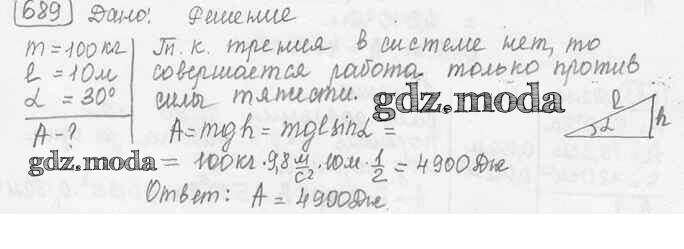 689 Дано: Решение
m = 100 кг Т. к. трения в системе нет, то
l = 10 м совершается работа только против
α = 30° силы тяжести. gdz.moda
A - ? A = mgh = mglsinα =
l α h
gdz.moda = 100 кг · 9,8 м/с² · 10 м · 1/2 = 4900 Дж
Ответ: A = 4900 Дж.